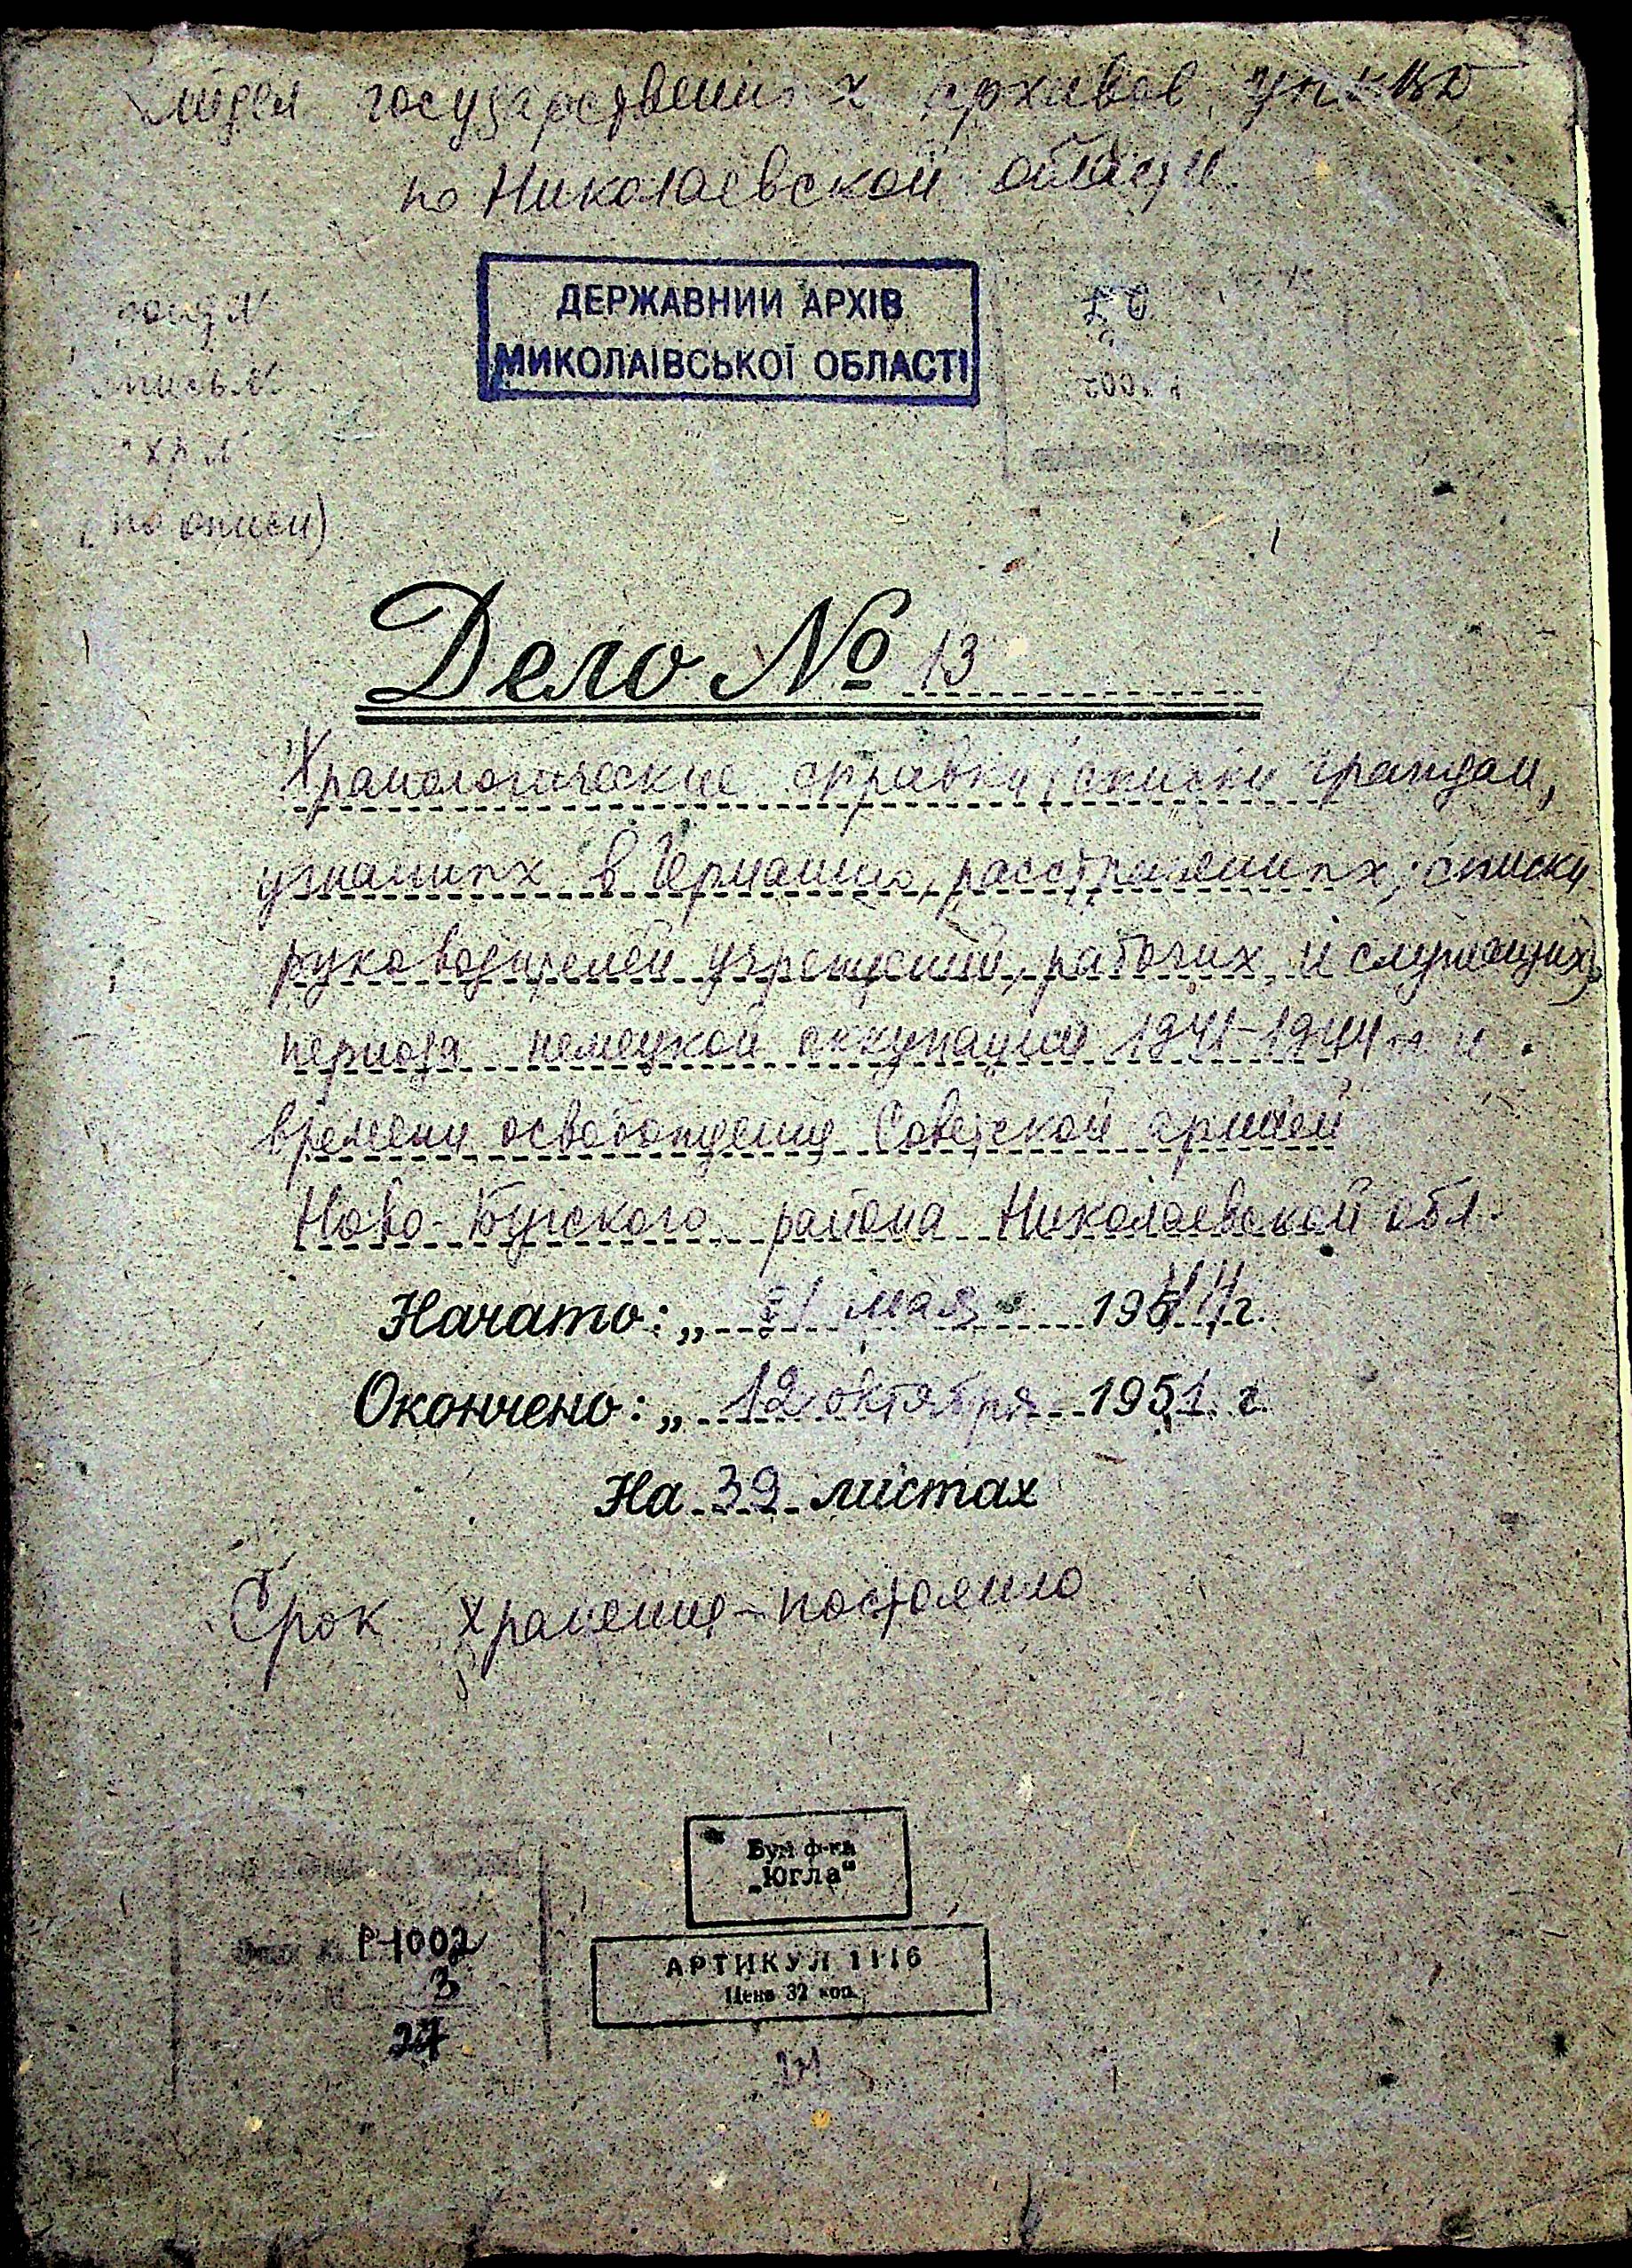 Отдел государственных архивов
по Николаевской области
ДЕРЖАВНИЙ АРХІВ
МИКОЛАЇВСЬКОЇ ОБЛАСТІ
(по описи)
Дело № 13
Хронологические справки, списки граждан,
угнанных в Германию, расстрелянных; списки
руководителей учреждений, рабочих и служащих)
периода немецкой оккупации 1941-1944 гг и
времени освобождения Советской армией
Ново-Бугского района Николаевской обл.
Начато: „ 31 мая 1944 г.
Окончено: „ 12 октября 1951 г.
На 39 листах
Срок хранения - постоянно
Бум ф-ка
„Югла“
АРТИКУЛ 1116
Цена 32 коп.
Р-1002
3
27